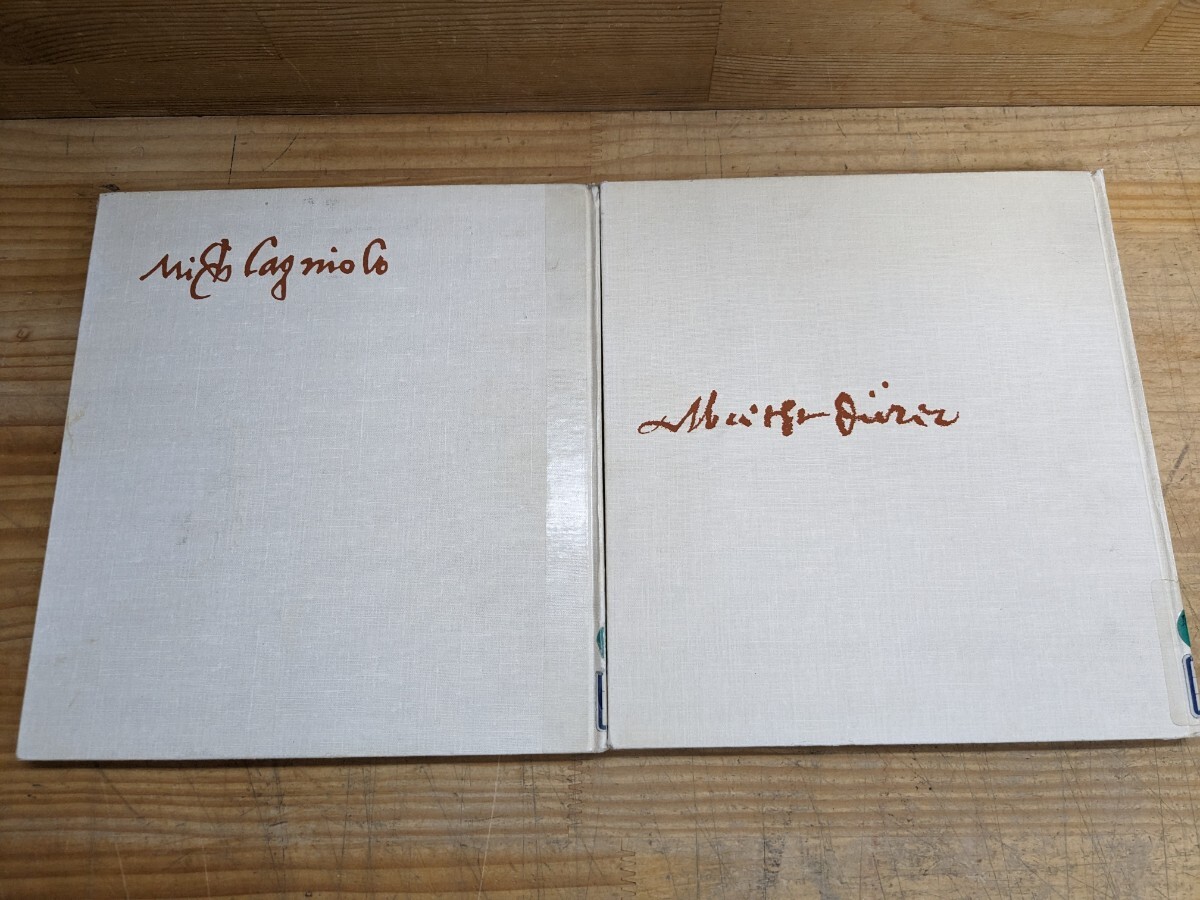 Michelagniolo
Albrecht Dürer